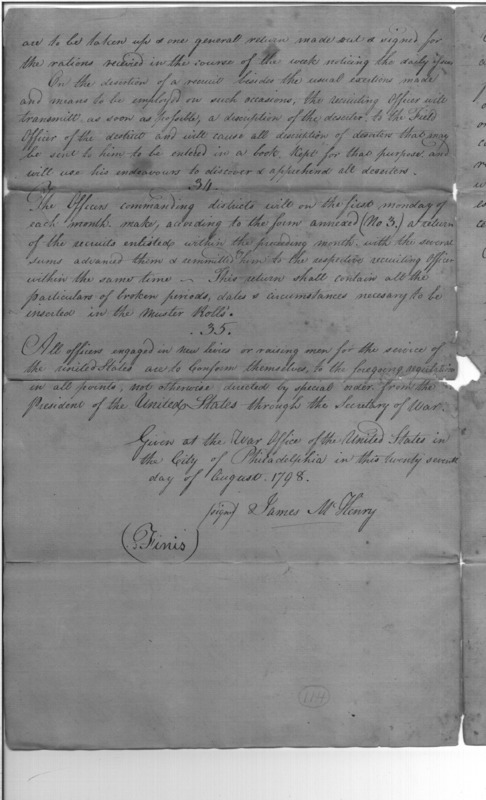 are to be taken up & one general return made out & signed for
the rations received in the course of the week noticing the daily Issues
On the desertion of a recruit besides the usual exertions made
and means to be employed on such occasions, the recruiting Officer will
transmitt, as soon as possible, a discription of the deserter, to the Field
Officer of the district and will cause all discription of deserters that may
be sent to him to be entered in a book, Kept for that purpose, and
will use his endeavours to discover & apprehend all deserters.
34
The Officers commanding districts will on the first monday of
each month make, according to the form annexed (No 3.) a return
of the recruits enlisted within the preceding month with the several
sums advanced them & committed him to the respective recruiting Officer
within the same time — This return shall contain all the
particulars of broken periods, dates & circumstances necessary to be
inserted in the Muster Rolls.
.35.
All officers engaged in new lives or raising men for the service of
the united States are to Conform themselves, to the foregoing regulation
in all points; not otherwise directed by special order from the
President of the United States through the Secretary of War.
Given at the War Office of the United States in
the City of Philadelphia in this twenty seventh
day of August. 1798.
(sign) & James McHenry
(Finis)
114